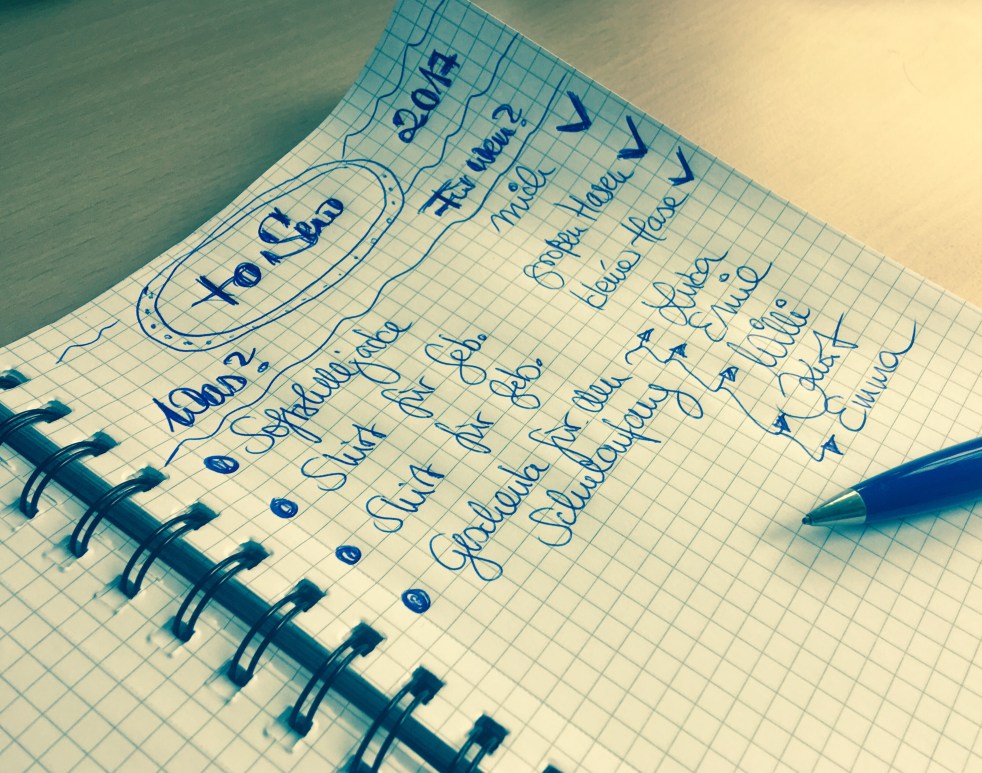 to Sew
2017
Was?
Für wen?
Softshelljacke
mich
Shirt für Geb.
großen Hasen
Shirt für Geb.
kleiner Hase
Geschenke für den
Schulanfang
Luca
Emil
Willi
Kurt
Emma